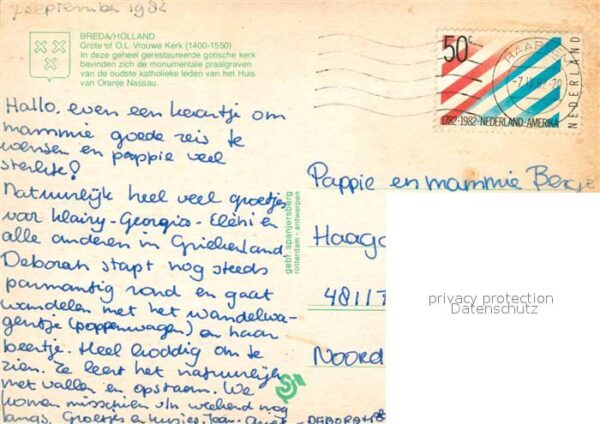 7 september 1982
BREDA/HOLLAND
Grote of O.L. Vrouwe Kerk (1400-1550)
In deze geheel gerestaureerde gotische kerk
bevinden zich de monumentale praalgraven
van de oudste katholieke leden van het Huis
van Oranje Nassau.
50c
NEDERLAND
1782-1982 · NEDERLAND-AMERIKA
-7.IX.82.-20
Hallo, even een kaartje om
mammie goede reis te
wensen en pappie veel
sterkte!
Natuurlijk heel veel groetjes
voor Klairy-Georgio-Elehi en
alle anderen in Griekenland
Deborah stapt nog steeds
parmantig rond en gaat
wandelen met het wandelwa-
gentje (poppenwagen) en haar
beertje. Heel koddig om te
zien. Ze leert het natuurlijk
met vallen en opstaan. We
komen misschien v/h weekend nog
langs. Groetjes en kusjes, Jean-
DEBORAH
gebr. spanjersberg
rotterdam - antwerpen
Pappie en mammie
Haag
4811
Noord
privacy protection
Datenschutz